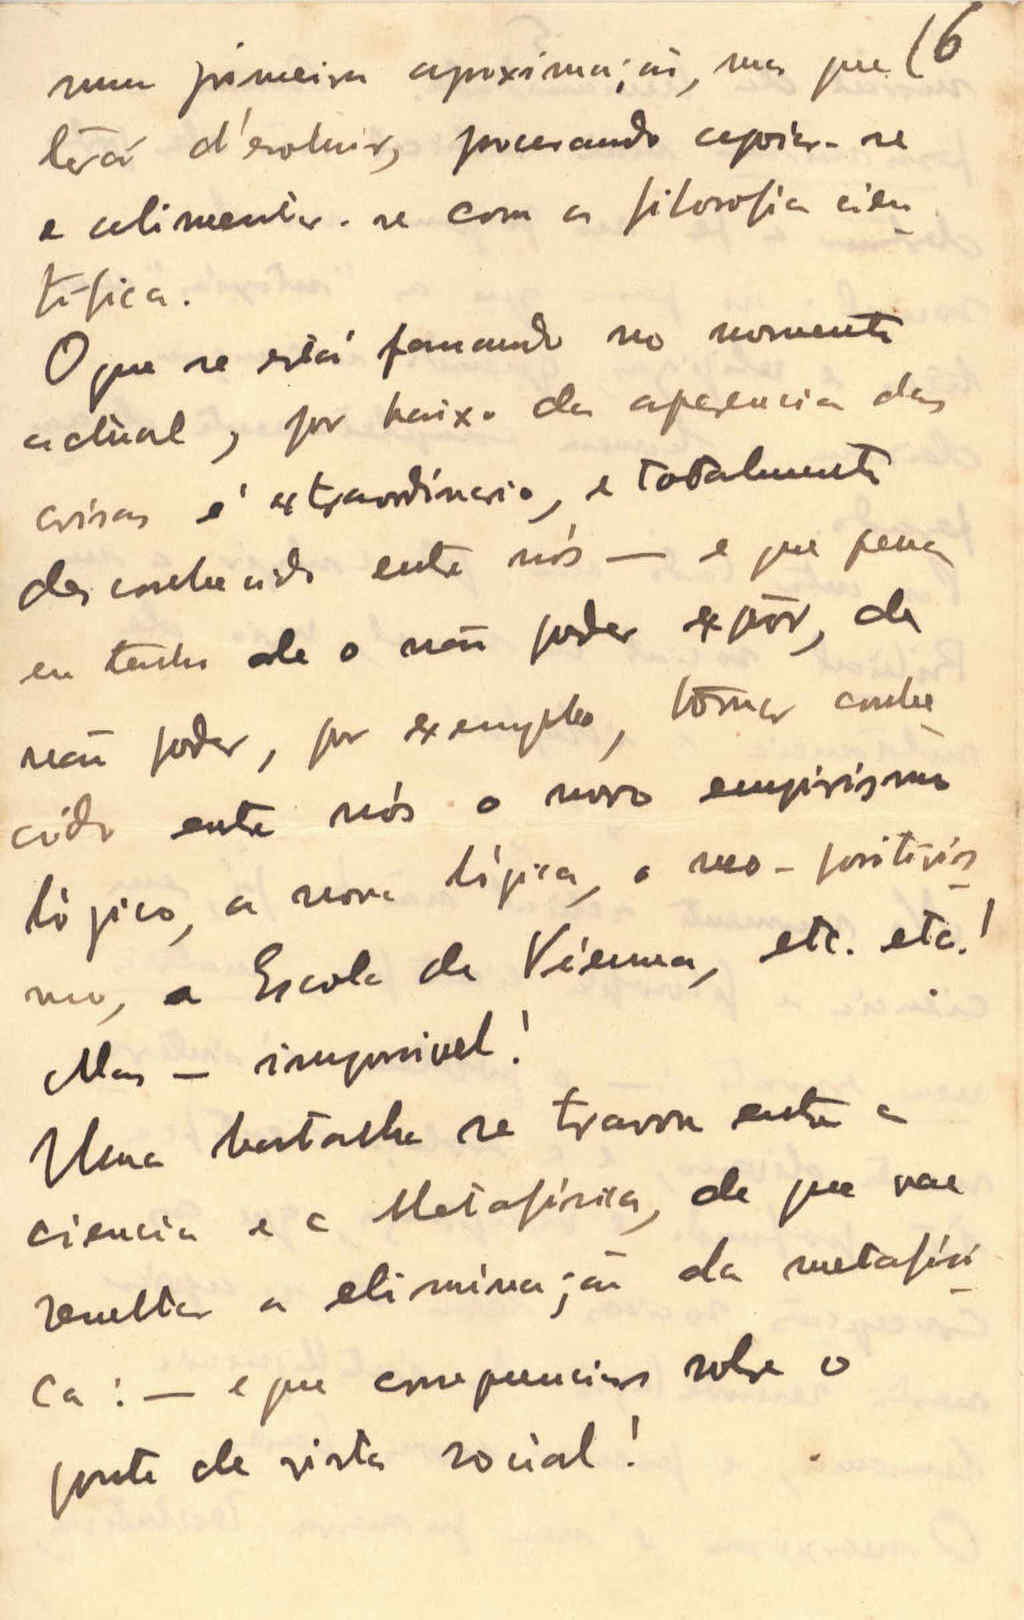 (6
numa primeira aproximação, mas que
terá d'evoluir, procurando apoiar-se
e alimentar-se com a filosofia cien
tífica.
O que se está passando no momento
actual, por baixo da aparencia das
coisas é extraordinario, e totalmente
desconhecido entre nós — e que pena
eu tenho de o não poder expôr, de
não poder, por exemplo, tornar conhe
cido entre nós o novo empirismo
lógico, a nova lógica, o neo-positivis
mo, a Escola de Vienna, etc. etc.!
Mas — impossivel!
Uma batalha se travou entre a
ciencia e a Metafísica, de que vae
resultar a eliminação da metafísi
ca: — e que consequencias sobre o
ponto de vista social!